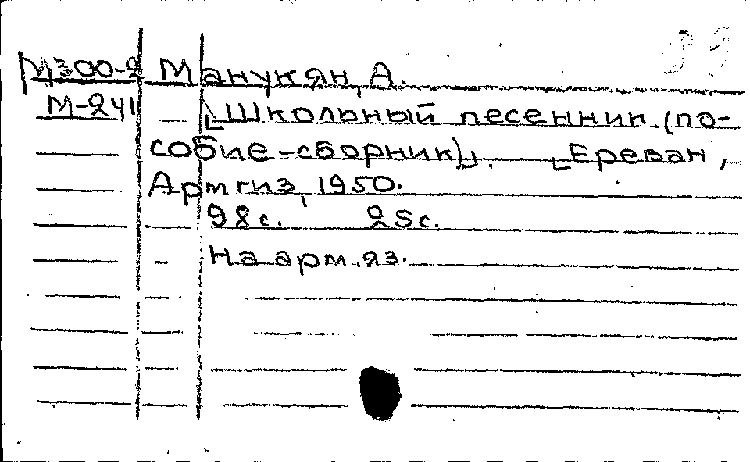 М300-2 Манукян, А.
М-241 [Школьный песенник (по-
собие-сборник)]. [Ереван,
Армгиз, 1950.
98 с. 25 с.
На арм. яз.